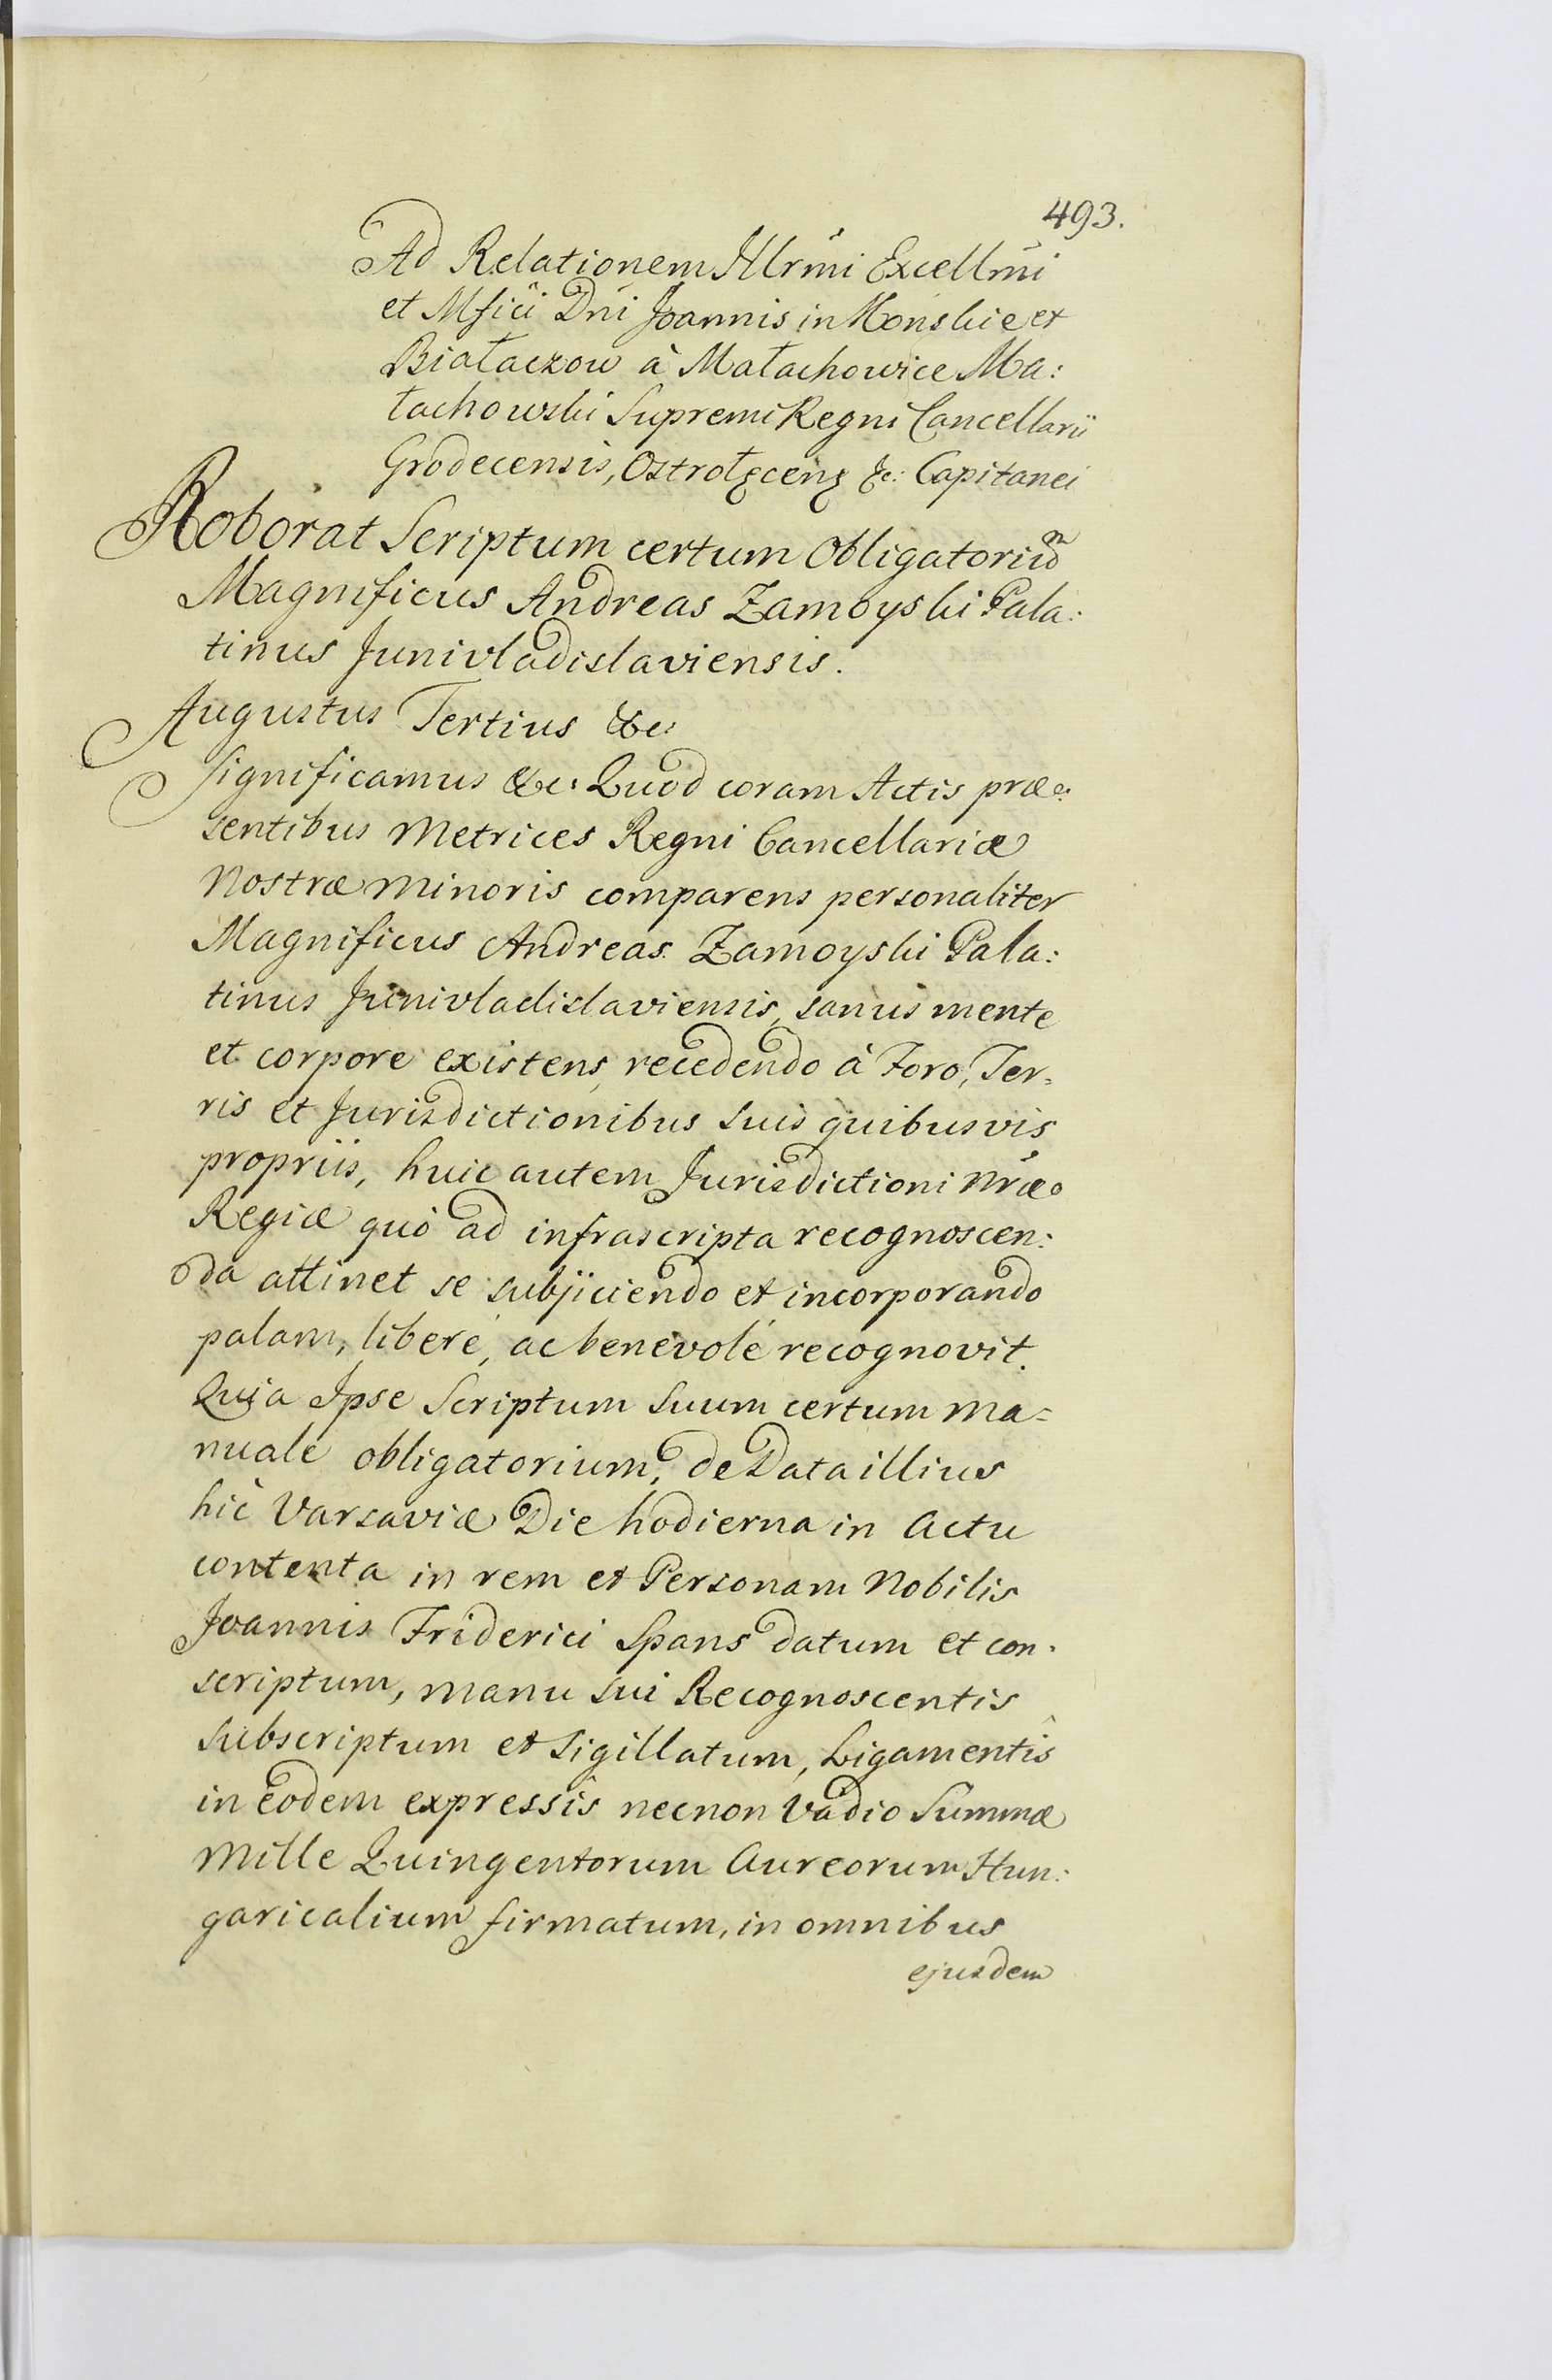 493.
Ad Relationem Illrmi Excellmi
et Mfici Dni Joannis in Końskie et
Białaczow à Małachowice Ma:
łachowski Supremi Regni Cancellarii
Grodecensis, Ostrołęcenȝ &c: Capitanei
Roborat Scriptum certum Obligatoriũ
Magnificus Andreas Zamoyski Pala:
tinus Junivladislaviensis.
Augustus Tertius &c:
Significamus &c: Quod coram Actis præ:
sentibus Metrices Regni Cancellariæ
Nostræ Minoris comparens personaliter
Magnificus Andreas Zamoyski Pala:
tinus Junivladislaviensis, sanus mente
et corpore existens, recedendo à Foro, Ter:
ris et Jurisdictionibus Suis quibusvis
propriis, huic autem Jurisdictioni Nræ
Regiæ quò ad infrascripta recognoscen:
da attinet se subjiciendo et incorporando
palam, liberè, ac benevolè recognovit.
Quia Ipse Scriptum Suum certum Ma=
nuale obligatorium, de Data illius
hìc Varsaviæ Die hodierna in Actu
contenta in rem et Personam Nobilis
Joannis Friderici Spans datum et con:
scriptum, manu sui Recognoscentis
Subscriptum et Sigillatum, Ligamentîs
in eodem expressîs necnon Vadio Summæ
Mille Quingentorum Aureorum Hun:
garicalium firmatum, in omnibus
ejusdem